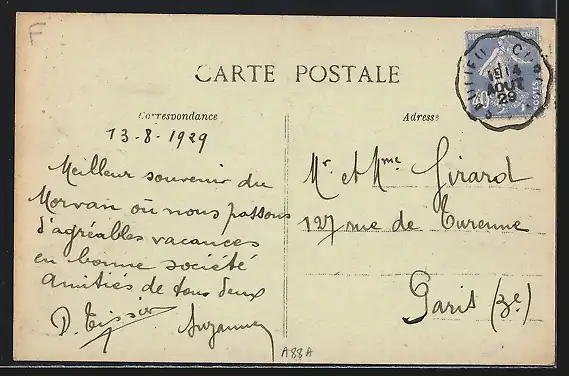 F
CARTE POSTALE
Correspondance
Adresse
13-8-1929
Meilleur souvenir du
Morvan où nous passons
d'agréables vacances
en bonne société
amitiés de tous deux
D. Tissier Suzanne
Mr. et Mme Girard
127 rue de Turenne
Paris (3e)
14
AOUT
29
40
POSTES
A88A